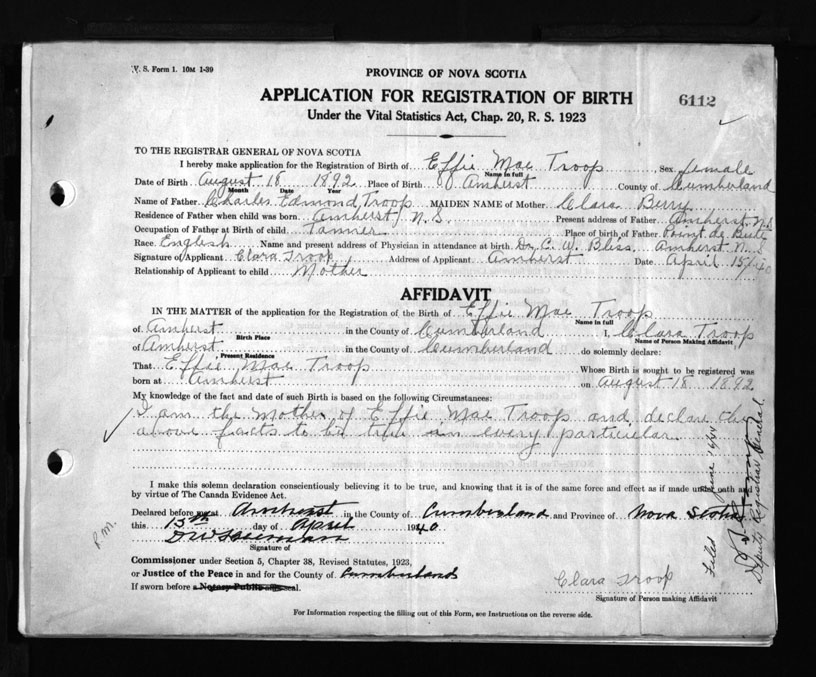 V. S. Form 1. 10M 1-39
PROVINCE OF NOVA SCOTIA
APPLICATION FOR REGISTRATION OF BIRTH
6112
Under the Vital Statistics Act, Chap. 20, R. S. 1923
TO THE REGISTRAR GENERAL OF NOVA SCOTIA
I hereby make application for the Registration of Birth of Effie Mae Troop Sex female
Name in full
Date of Birth August 18 1892 Place of Birth Amherst County of Cumberland
Month Date Year
Name of Father Charles Edmond Troop MAIDEN NAME of Mother Clara Berry
Residence of Father when child was born Amherst N.S. Present address of Father Amherst N.S.
Occupation of Father at Birth of child Tanner Place of birth of Father Point de Bute
Race English Name and present address of Physician in attendance at birth Dr. C. W. Bliss Amherst N.S.
Signature of Applicant Clara Troop Address of Applicant Amherst Date April 15/40
Relationship of Applicant to child Mother
AFFIDAVIT
IN THE MATTER of the application for the Registration of the Birth of Effie Mae Troop
Name in full
of Amherst in the County of Cumberland I, Clara Troop
Birth Place Name of Person Making Affidavit
of Amherst in the County of Cumberland do solemnly declare:
Present Residence
That Effie Mae Troop Whose Birth is sought to be registered was
born at Amherst on August 18 1892
My knowledge of the fact and date of such Birth is based on the following Circumstances:
I am the Mother of Effie Mae Troop and declare the
above facts to be true in every particular
I make this solemn declaration conscientiously believing it to be true, and knowing that it is of the same force and effect as if made under oath and
by virtue of The Canada Evidence Act.
Declared before me at Amherst in the County of Cumberland and Province of Nova Scotia
this 15th day of April 1940
Signature of
Commissioner under Section 5, Chapter 38, Revised Statutes, 1923,
or Justice of the Peace in and for the County of Cumberland
If sworn before a Notary Public affix seal.
Clara Troop
Signature of Person making Affidavit
For Information respecting the filling out of this Form, see Instructions on the reverse side.
P.M.
Filed June
Deputy Registrar General